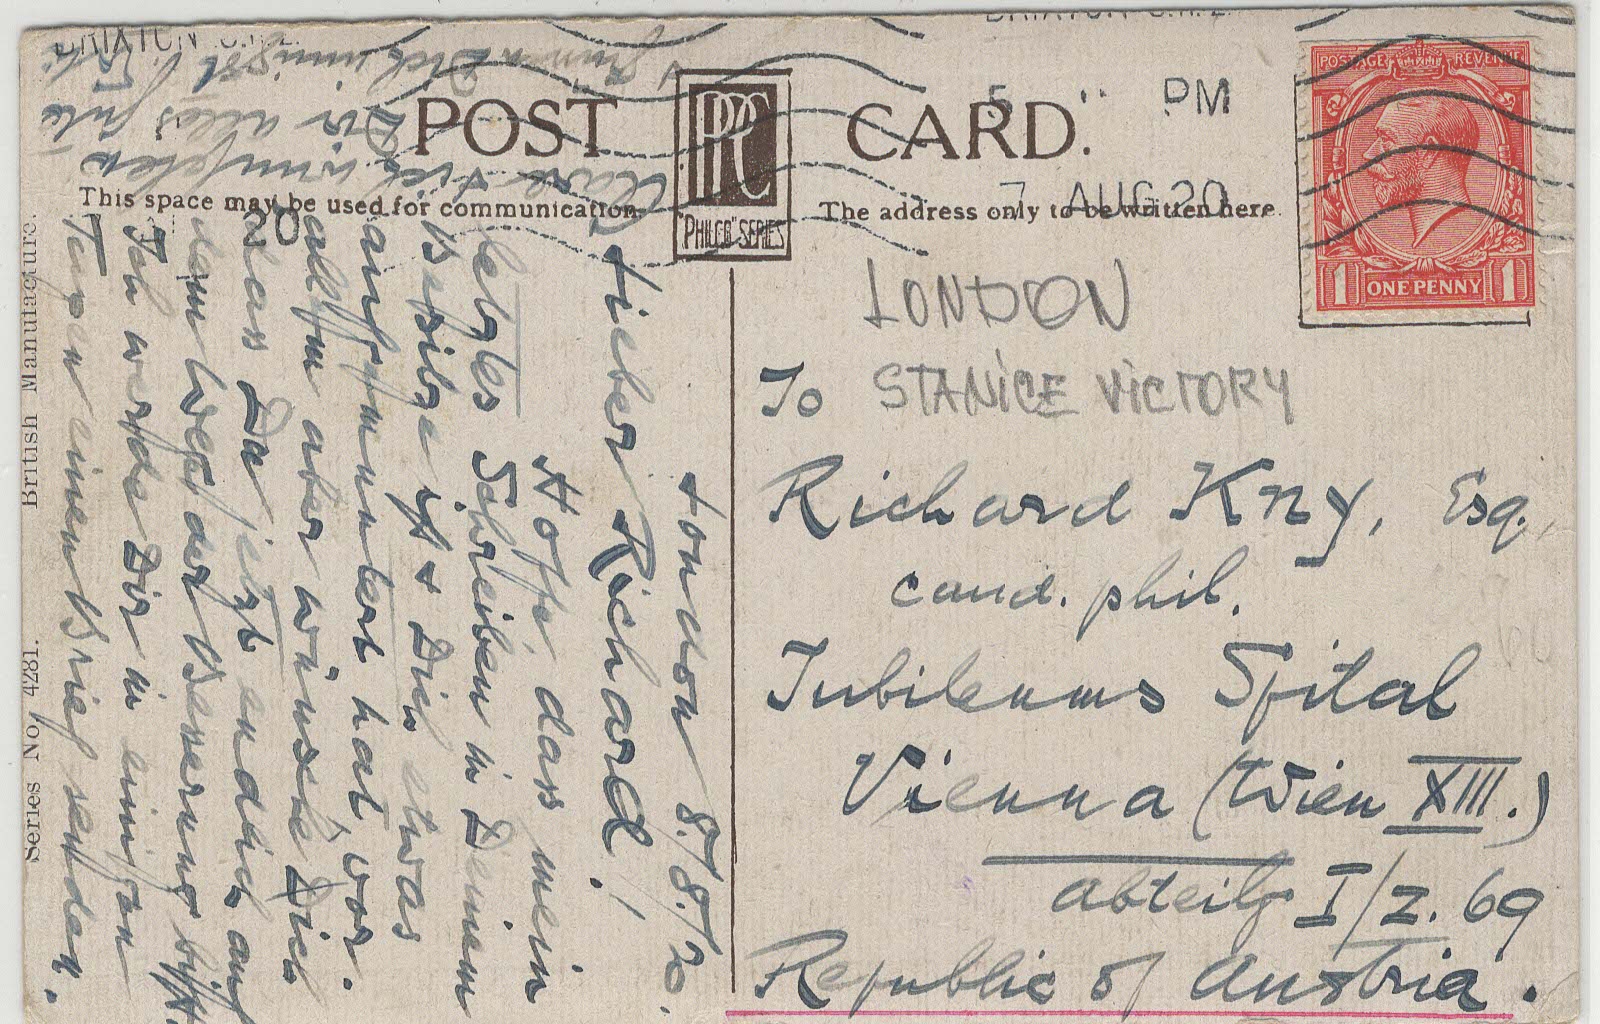 BRIXTON S.W.2.
BRIXTON S.W.2.
5 PM
7 AUG 20
20
POST CARD.
RPC
"PHILCO" SERIES
This space may be used for communication
The address only to be written here.
POSTAGE REVENUE
1 ONE PENNY 1
British Manufacture.
Series No 4281.
London 8./8./20.
Lieber Richard!
Hoffe, dass mein
letztes Schreiben in Deinem
Besitze ist & Dich etwas
aufgemuntert hat, vor
allem aber wünsche Dich
dass Du jetzt endlich auf
dem Weg der Besserung bist.
Ich werde Dir in einigen
Tagen einen Brief senden.
Dir alles Gute
Dich innigst
LONDON
STANICE VICTORY
To
Richard Kny, Esq.,
cand. phil.
Jubileums Spital
Vienna (Wien XIII.)
Abteilg I/Z. 69
Republic of Austria.